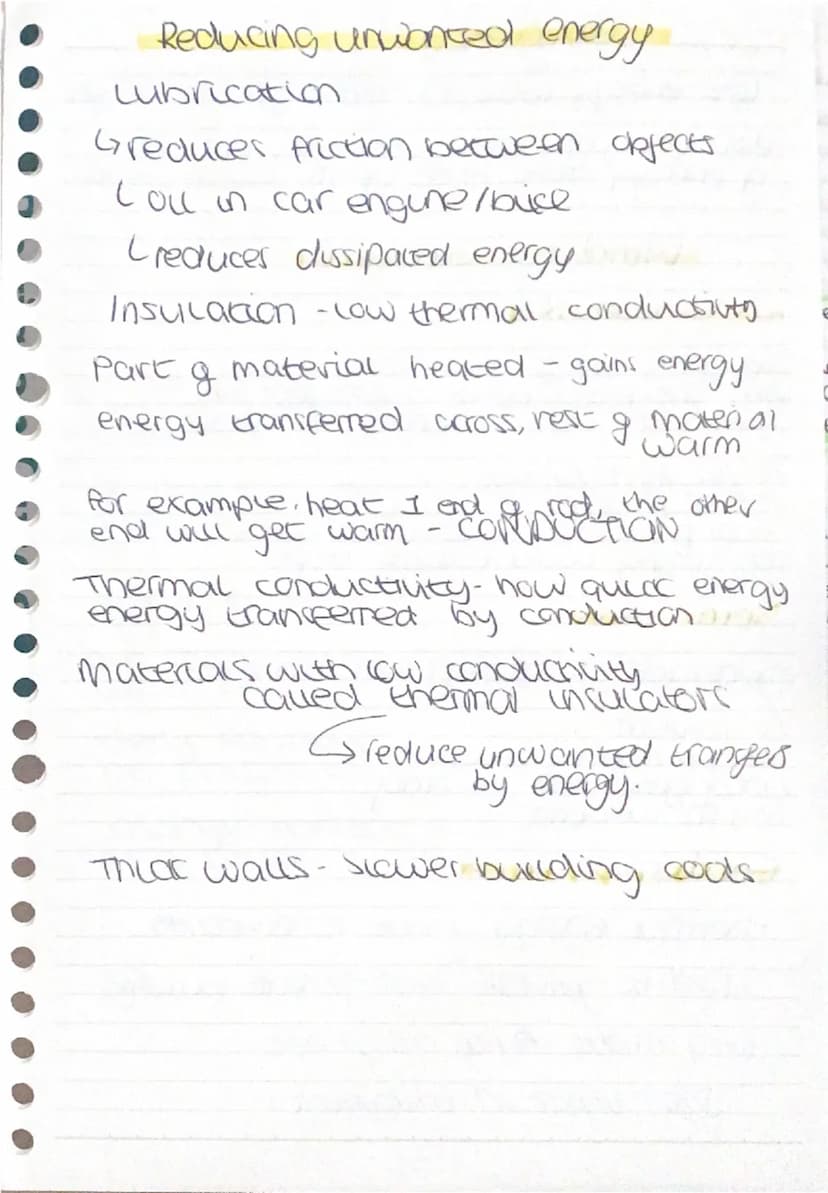 Reducing unwanted energy
Lubrication
↳reduces friction between objects
↳oil in car engine/bike
↳reduces dissipated energy
Insulation - low thermal conductivity
Part of material heated - gains energy
energy transferred across, rest of material
warm
for example, heat 1 end of rod, the other
end will get warm - CONDUCTION
Thermal conductivity - how quick energy
energy transferred by conduction
Materials with low conductivity
called thermal insulators
↳reduce unwanted
by energy.
Thick walls - slower building cools